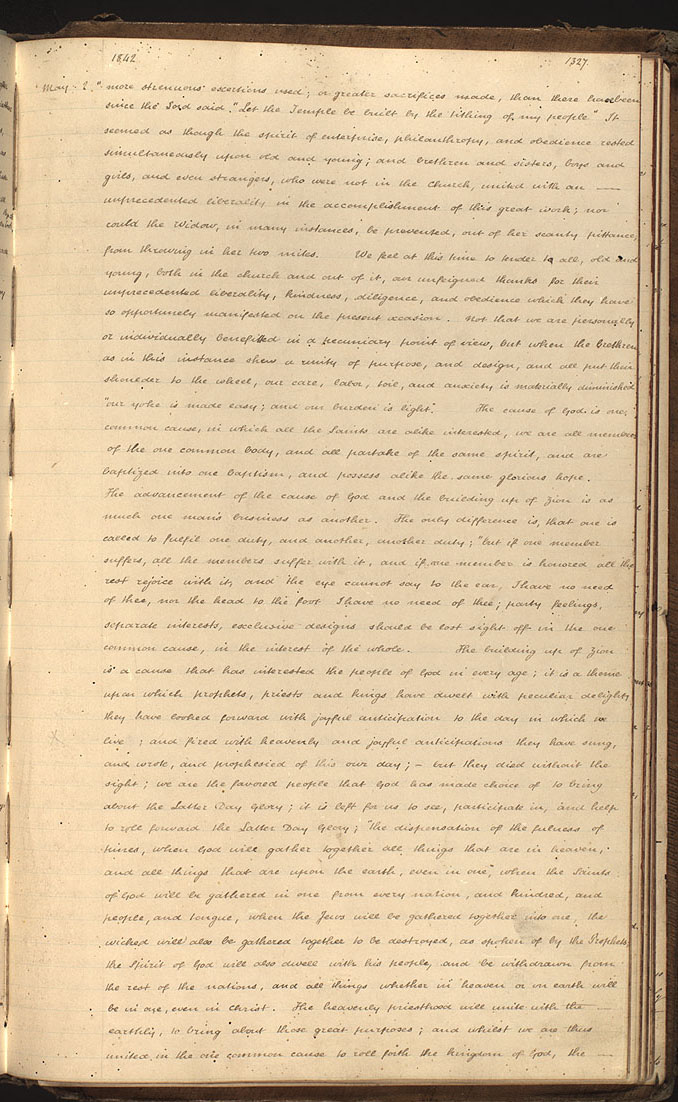 1842
1327
May 2. " more strenuous exertions used; or greater sacrifices made, than there has been
since the Lord said. "Let the Temple be built by the tithing of my people." It
seemed as though the spirit of enterprise, philanthropy, and obedience rested
simultaneously upon old and young; and brethren and sisters, boys and
girls, and even strangers, who were not in the Church, united with an —
unprecedented liberality in the accomplishment of this great work; nor
could the Widow, in many instances, be prevented, out of her scanty pittance,
from throwing in her two mites. We feel at this time to tender to all, old and
young, both in the church and out of it, our unfeigned thanks for their
unprecedented liberality, kindness, diligence, and obedience which they have
so opportunely manifested on the present occasion. Not that we are personally
or individually benefitted in a pecuniary point of view, but when the brethren
as in this instance shew a unity of purpose, and design, and all put their
shoulder to the wheel, our care, labor, toil, and anxiety is materially diminished
"our yoke is made easy; and our burden is light." The cause of God is one
common cause, in which all the Saints are alike interested, we are all members
of the one common body, and all partake of the same spirit, and are
baptized into one baptism, and possess alike the same glorious hope.
The advancement of the cause of God and the building up of Zion is as
much one man's business as another. The only difference is, that one is
called to fulfil one duty, and another, another duty; "but if one member
suffers, all the members suffer with it, and if one member is honored all the
rest rejoice with it, and the eye cannot say to the ear, I have no need
of thee, nor the head to the foot I have no need of thee; party feelings,
separate interests, exclusive designs should be lost sight off in the one
common cause, in the interest of the whole. The building up of Zion
is a cause that has interested the people of God in every age; it is a theme
upon which prophets, priests and kings have dwelt with peculiar delight,
they have looked forward with joyful anticipation to the day in which we
live; and fired with heavenly and joyful anticipations they have sung,
and wrote, and prophesied of this our day; – but they died without the
sight; we are the favored people that God has made choice of to bring
about the Latter Day Glory; it is left for us to see, participate in, and help
to roll forward the Latter Day Glory; "the dispensation of the fulness of
times, when God will gather together all things that are in heaven,
and all things that are upon the earth, even in one", when the Saints
of God will be gathered in one from every nation, and kindred, and
people, and tongue, when the Jews will be gathered together into one, the
wicked will also be gathered together to be destroyed, as spoken of by the Prophets;
the Spirit of God will also dwell with his people, and be withdrawn from
the rest of the nations, and all things whether in heaven or on earth will
be in one, even in Christ. The heavenly priesthood will unite with the —
earthly, to bring about those great purposes; and whilst we are thus
united in the one common cause to roll forth the kingdom of God, the —